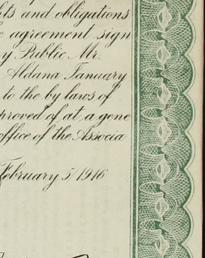 ts and obligations
e agreement sign
y Public. Mr.
Aldana January
to the by laws of
proved of at a gene
office of the Associa
February 5, 1916